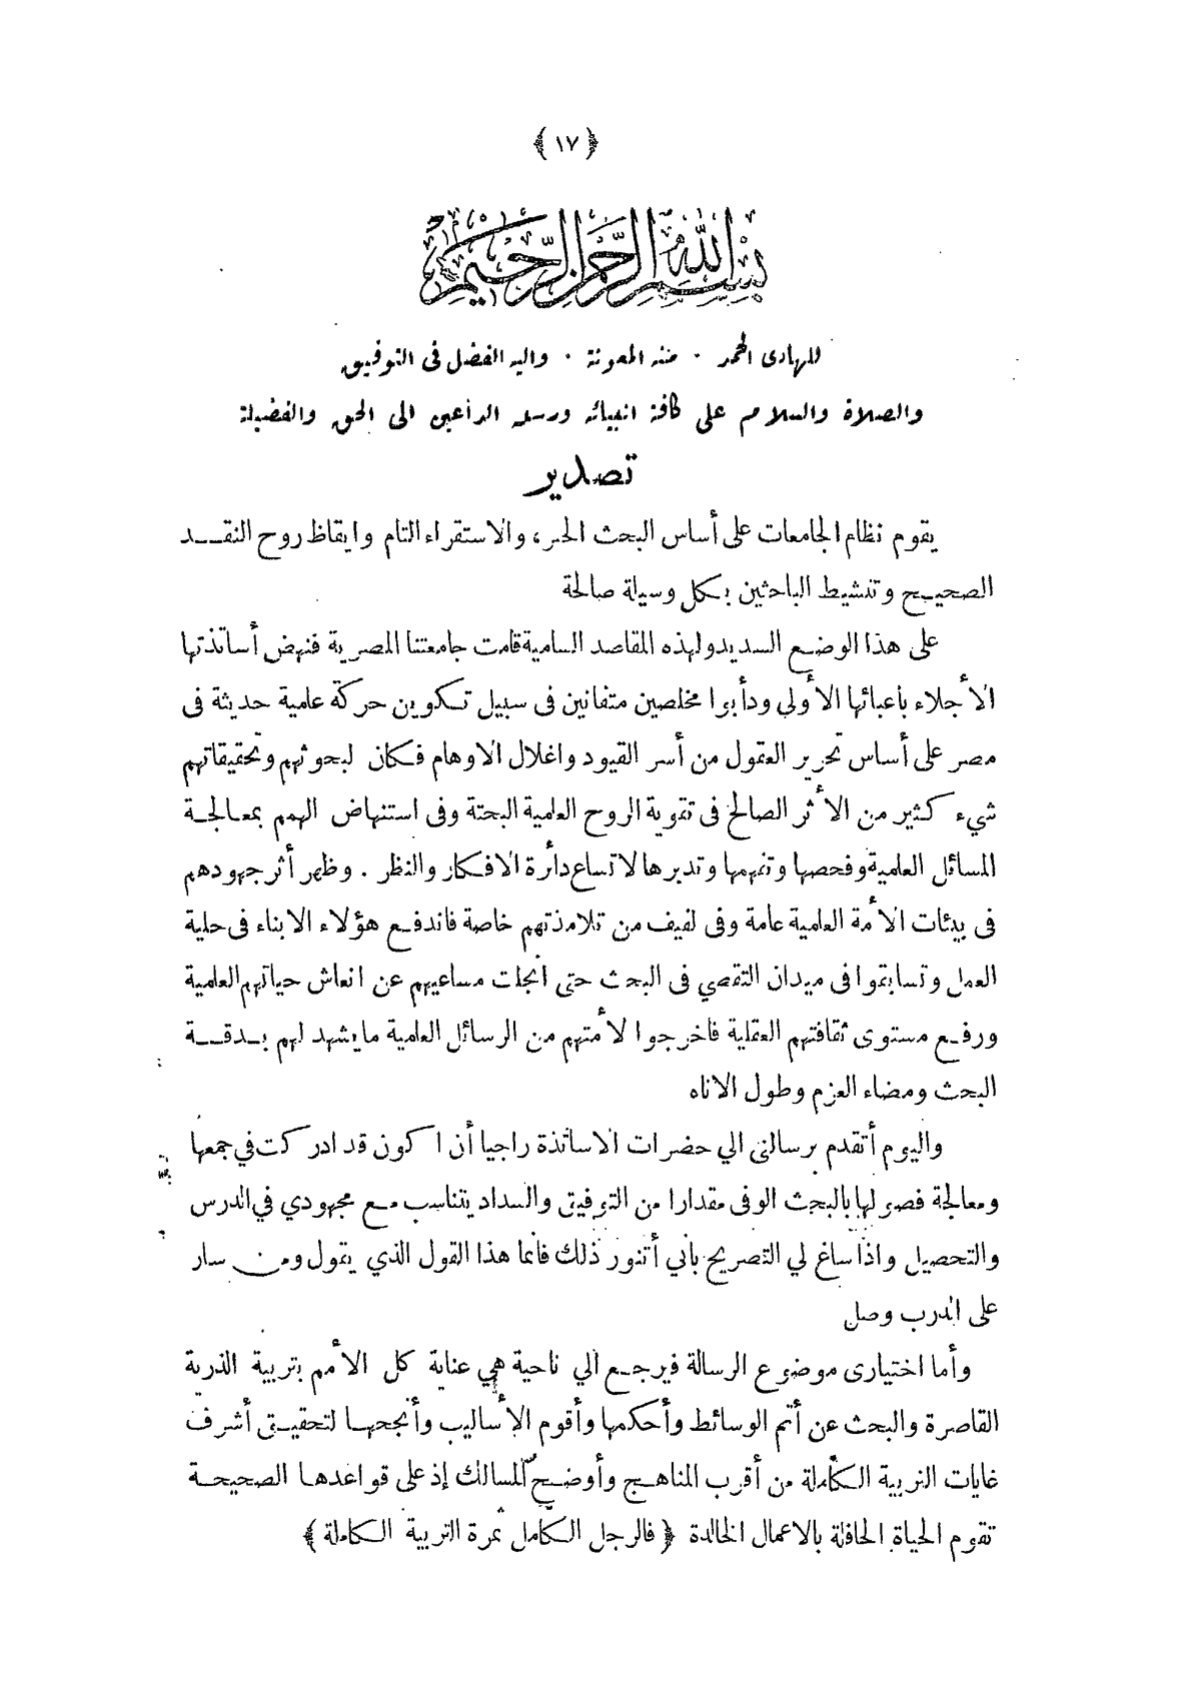 ﴿ ١٧ ﴾
بسم الله الرحمن الرحيم
للهادى الحمد . منه المعونة . واليه الفضل فى التوفيق
والصلاة والسلام على كافة انبيائه ورسله الداعين الى الحق والفضيلة
تصدير
يقوم نظام الجامعات على أساس البحث الحر، والاستقراء التام وايقاظ روح النقــد
الصحيح وتنشيط الباحثين بكل وسيلة صالحة
على هذا الوضع السديد ولهذه المقاصد السامية قامت جامعتنا المصرية فنهض أساتذتها
الأجلاء بأعبائها الأولى ودأبوا مخلصين متفانين فى سبيل تكوين حركة علمية حديثة فى
مصر على أساس تحرير العقول من أسر القيود واغلال الاوهام فكان لبحوثهم وتحقيقاتهم
شيء كثير من الأثر الصالح فى تقوية الروح العلمية البحتة وفى استنهاض الهمم بمعالجة
المسائل العلمية وفحصها وتفهمها وتدبرها لاتساع دأئرة الافكار والنظر . وظهر أثر جهودهم
فى بيئات الأمة العلمية عامة وفى لفيف من تلامذتهم خاصة فاندفع هؤلاء الابناء فى حلبة
العمل وتسابقوا فى ميدان التقصي فى البحث حتى انجلت مساعيهم عن انعاش حياتهم العلمية
ورفع مستوى ثقافتهم العقلية فاخرجوا لأمتهم من الرسائل العلمية مايشهد لهم بــدقــة
البحث ومضاء العزم وطول الاناه
واليوم أتقدم برسالتى الي حضرات الاساتذة راجيا أن اكون قد ادركت في جمعها
ومعالجة فصولها بالبحث الوفى مقدارا من التوفيق والسداد يتناسب مع مجهودي في الدرس
والتحصيل واذا ساغ لي التصريح بأني أتنور ذلك فانما هذا القول الذي يقول ومن سار
على الدرب وصل
وأما اختيارى موضوع الرسالة فيرجع الي ناحية هي عناية كل الأمم بتربية الذرية
القاصرة والبحث عن أتم الوسائط وأحكمها وأقوم الأساليب وأنجحها لتحقيق أشرف
غايات التربية الكاملة من أقرب المناهج وأوضح المسالك إذ على قواعدها الصحيحة
تقوم الحياة الحافلة بالاعمال الخالدة ﴿ فالرجل الكامل ثمرة التربية الكاملة ﴾